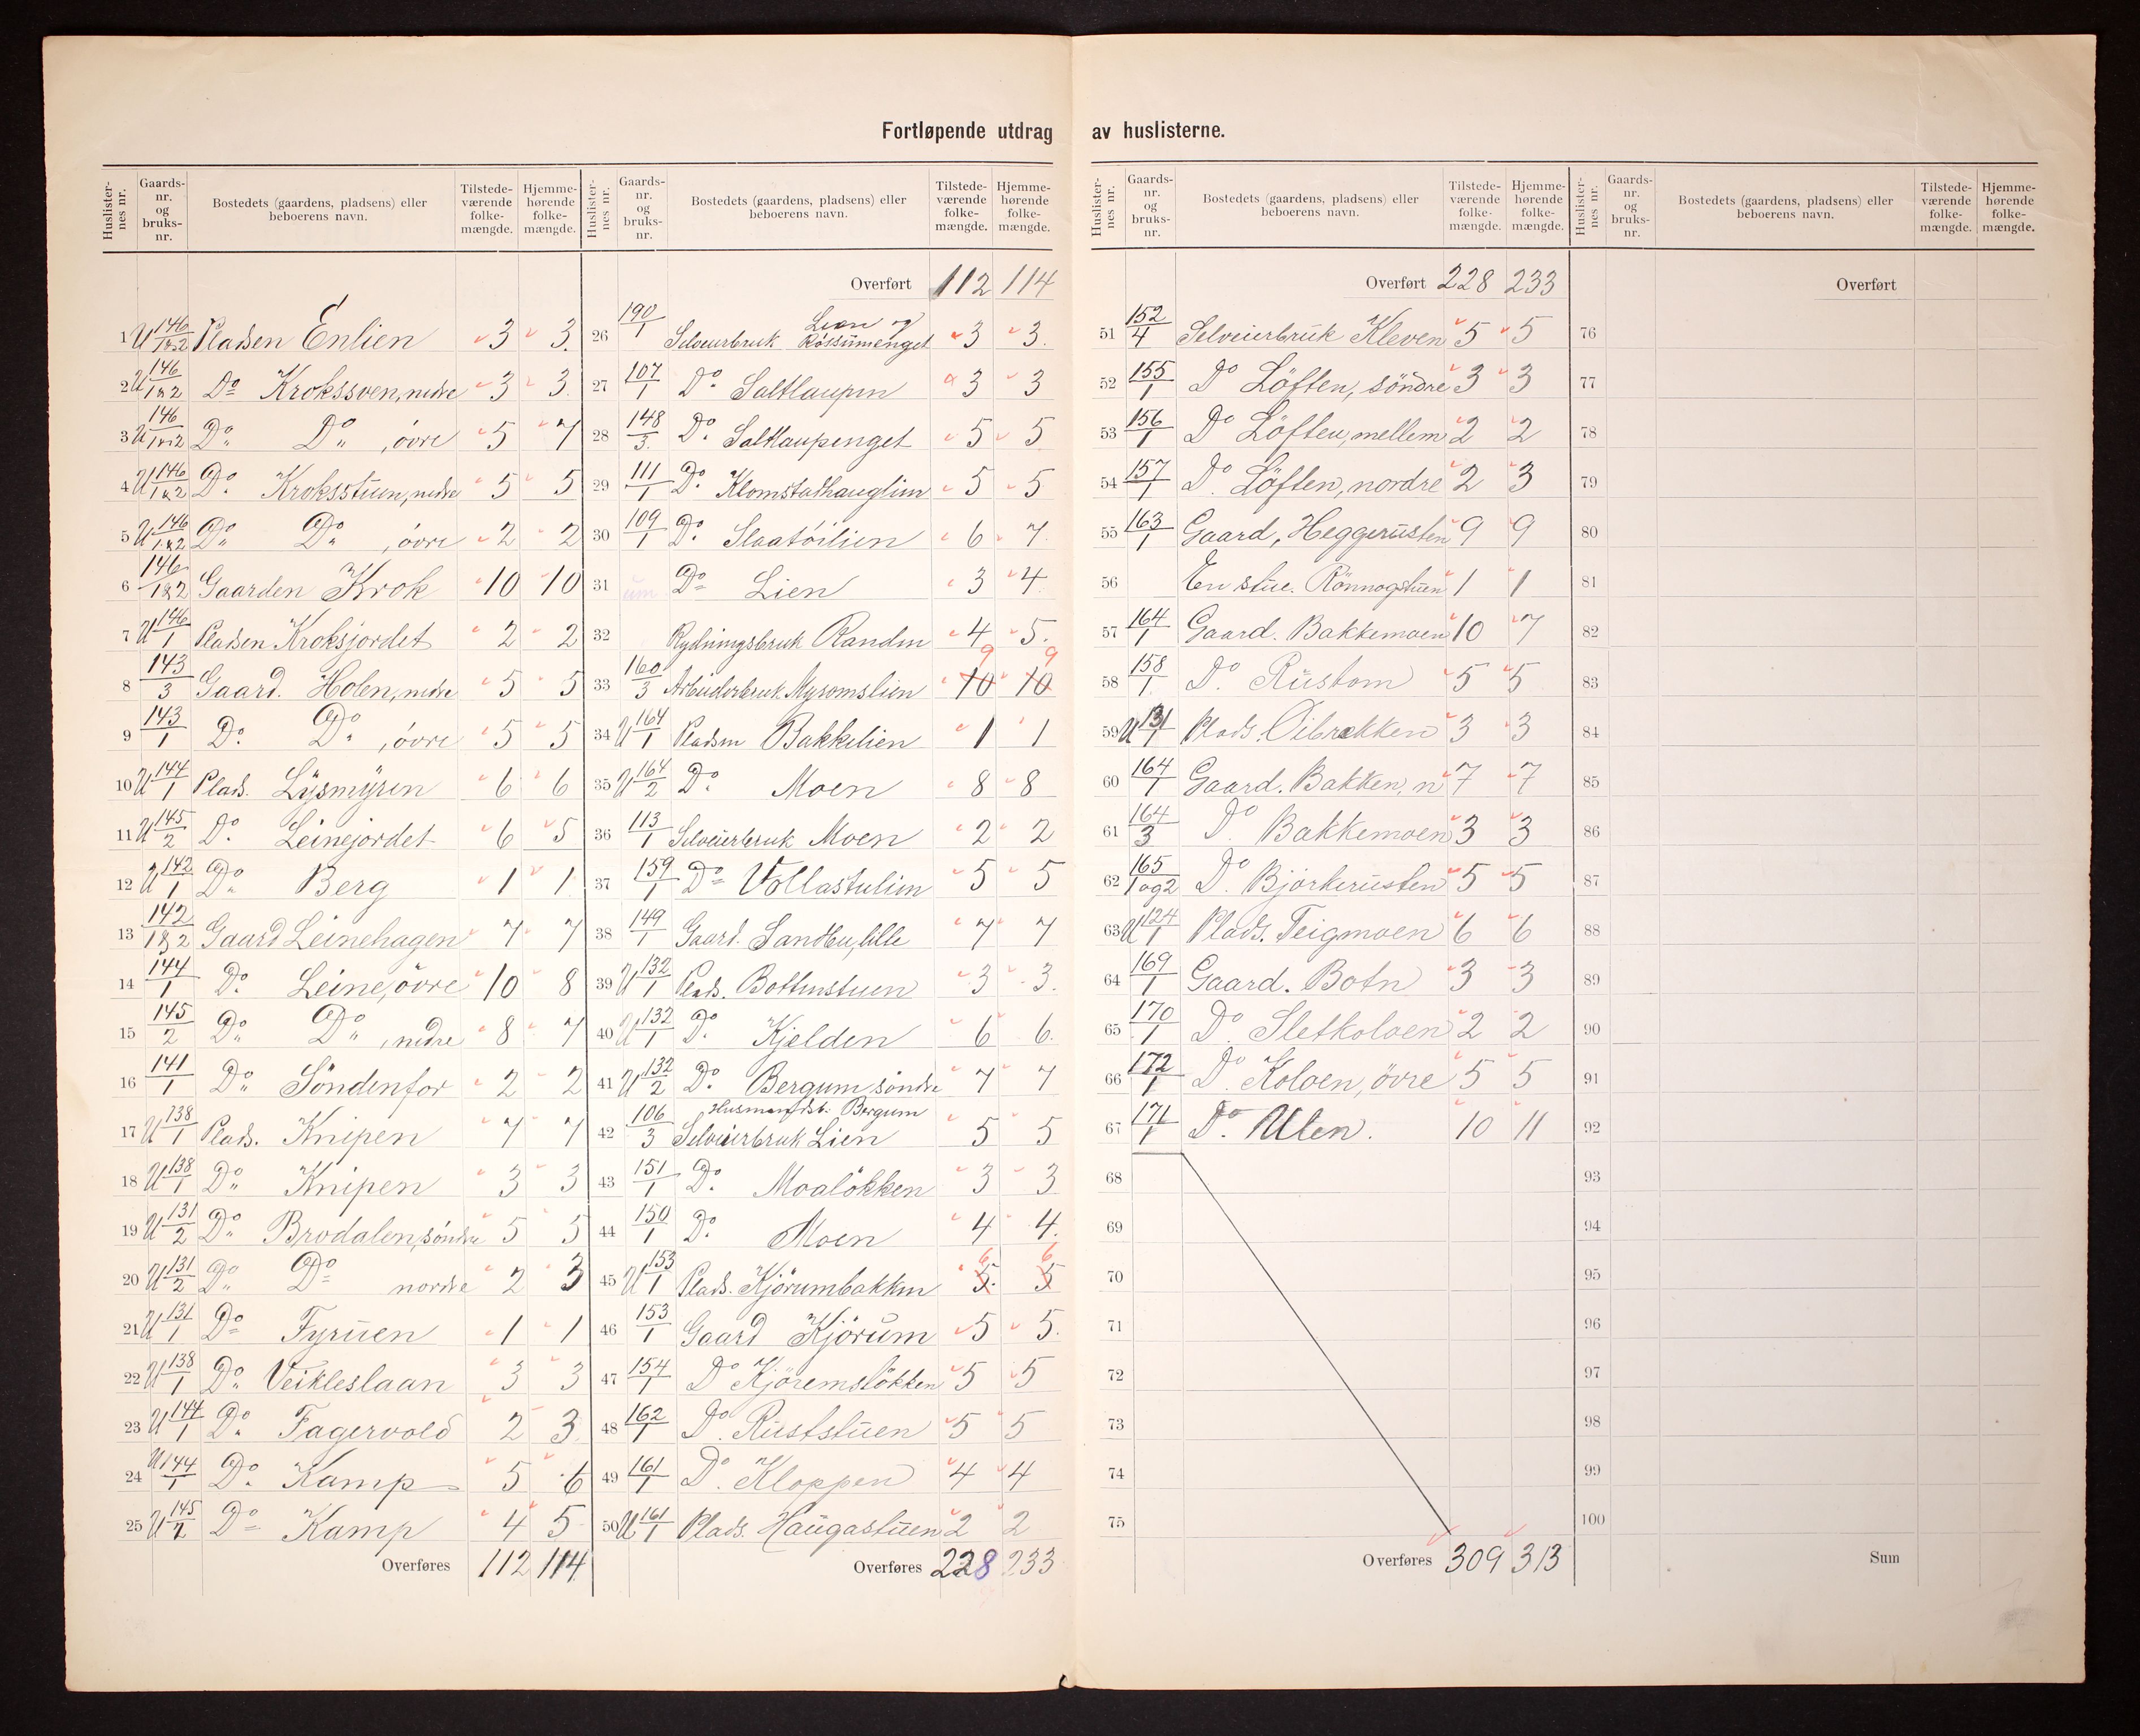 Fortløpende utdrag av huslisterne.
Huslister-nes nr. | Gaards-nr. og bruks-nr. | Bostedets (gaardens, pladsens) eller beboerens navn. | Tilstede-værende folke-mængde. | Hjemme-hørende folke-mængde.
1 U 146/1&2 Pladsen Enlien 3 3.
2 U 146/1&2 Do Krokssven, nedre 3 3
3 U 146/1&2 Do Do, övre 5 7
4 U 146/1&2 Do Kroksstuen, nedre 5 5
5 U 146/1&2 Do Do, övre 2 2
6 146/1&2 Gaarden Krok 10 10
7 U 146/1 Pladsen Kroksjordet 2 2
8 143/3 Gaard. Holen, nedre 5 5
9 143/1 Do. Do, övre 5 5
10 U 144/1 Plads. Lysmyren 6 6
11 U 145/2 Do. Leinejordet 6 5
12 U 142/1 Do Berg 1 1
13 142/1&2 Gaard Leinehagen 7 7
14 144/1 Do. Leine, övre 10 8
15 145/2 Do Do, nedre 8 7
16 141/1 Do Söndenfor 2 2
17 U 138/1 Plads. Knipen 7 7
18 U 138/1 Do Knipen 3 3
19 U 131/2 Do Brodalen, söndre 5 5
20 U 131/2 Do Do nordre 2 3
21 U 131/1 Do Fyruen 1 1
22 U 138/1 Do Veikleslaan 3 3
23 U 144/1 Do Fagervold 2 3
24 U 144/1 Do. Kamp 5 6
25 U 145/2 Do Kamp 4 5
Overføres 112 114
Huslister-nes nr. | Gaards-nr. og bruks-nr. | Bostedets (gaardens, pladsens) eller beboerens navn. | Tilstede-værende folke-mængde. | Hjemme-hørende folke-mængde.
Overført 112 114
26 190/1 Selveierbruk Lien og Rossumenget 3 3.
27 107/1 Do. Saltlaupen 3 3
28 148/3. Do. Saltlaupenget 5 5
29 111/1 Do. Klomstadhauglien 5 5
30 109/1 Do. Slaatöilien 6 7.
31 Do Lien 3 4.
32 Rydningsbruk Randen 4 5.
33 160/3 Arbeiderbruk Mysomslien 10 9 10 9
34 U 164/1 Pladsen Bakkelien 1 1
35 U 164/2 Do. Moen 8 8
36 113/1 Selveierbruk Moen 2 2
37 159/1 Do Vollastulien 5 5
38 149/1 Gaard. Sandbu, lille 7 7
39 U 132/1 Plads. Bottenstuen 3 3.
40 U 132/1 Do. Kjelden 6 6.
41 U 132/2 Do. Bergum, söndre 7 7
Husmandsst. Bergum
42 106/3 Selveierbruk Lien 5 5
43 151/1 Do. Moalökken 3 3
44 150/1 Do. Moen 4 4.
45 U 153/1 Plads. Kjörumbakken 5. 6 5 6
46 153/1 Gaard Kjörum 5 5.
47 154/1 Do Kjöremslökken 5 5
48 162/1 Do. Ruststuen 5 5
49 161/1 Do. Kloppen 4 4
50 U 161/1 Plads. Haugastuen 2 2
Overføres 228 233
Huslister-nes nr. | Gaards-nr. og bruks-nr. | Bostedets (gaardens, pladsens) eller beboerens navn. | Tilstede-værende folke-mængde. | Hjemme-hørende folke-mængde.
Overført 228 233
51 152/4 Selveierbruk Kleven 5 5
52 155/1 Do Löften, söndre 3 3
53 156/1 Do Löften, mellem 2 2
54 157/1 Do. Löften, nordre 2 3
55 163/1 Gaard, Heggerusten 9 9
56 En stue. Rönnogstuen 1 1
57 164/1 Gaard. Bakkemoen 10 7
58 158/1 Do. Rustom 5 5
59 U 131/1 Plads. Öibrækken 3 3
60 164/1 Gaard. Bakken, n 7 7
61 164/3 Do. Bakkemoen 3 3
62 165/1 og 2 Do. Bjørkerusten 5 5
63 U 124/1 Plads. Teigmoen 6 6
64 169/1 Gaard. Botn 3 3
65 170/1 Do. Sletkoloen 2 2
66 172/1 Do. Koloen, övre 5 5
67 171/1 Do. Ulen. 10 11
68
69
70
71
72
73
74
75
Overføres 309 313
Huslister-nes nr. | Gaards-nr. og bruks-nr. | Bostedets (gaardens, pladsens) eller beboerens navn. | Tilstede-værende folke-mængde. | Hjemme-hørende folke-mængde.
Overført
76
77
78
79
80
81
82
83
84
85
86
87
88
89
90
91
92
93
94
95
96
97
98
99
100
Sum